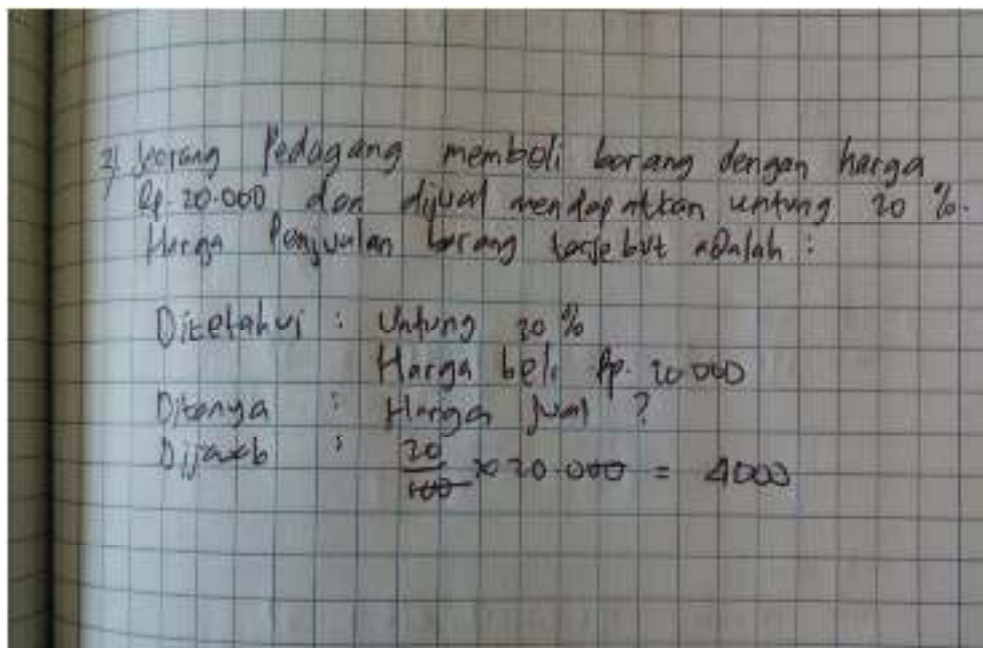 2) Seorang Pedagang membeli barang dengan harga
Rp. 20.000 dan dijual mendapatkan untung 20 %.
Harga Penjualan barang tersebut adalah :
Diketahui : Untung 20 %
Harga beli Rp. 20.000
Ditanya : Harga jual ?
Dijawab : 20/100 x 20.000 = 4000